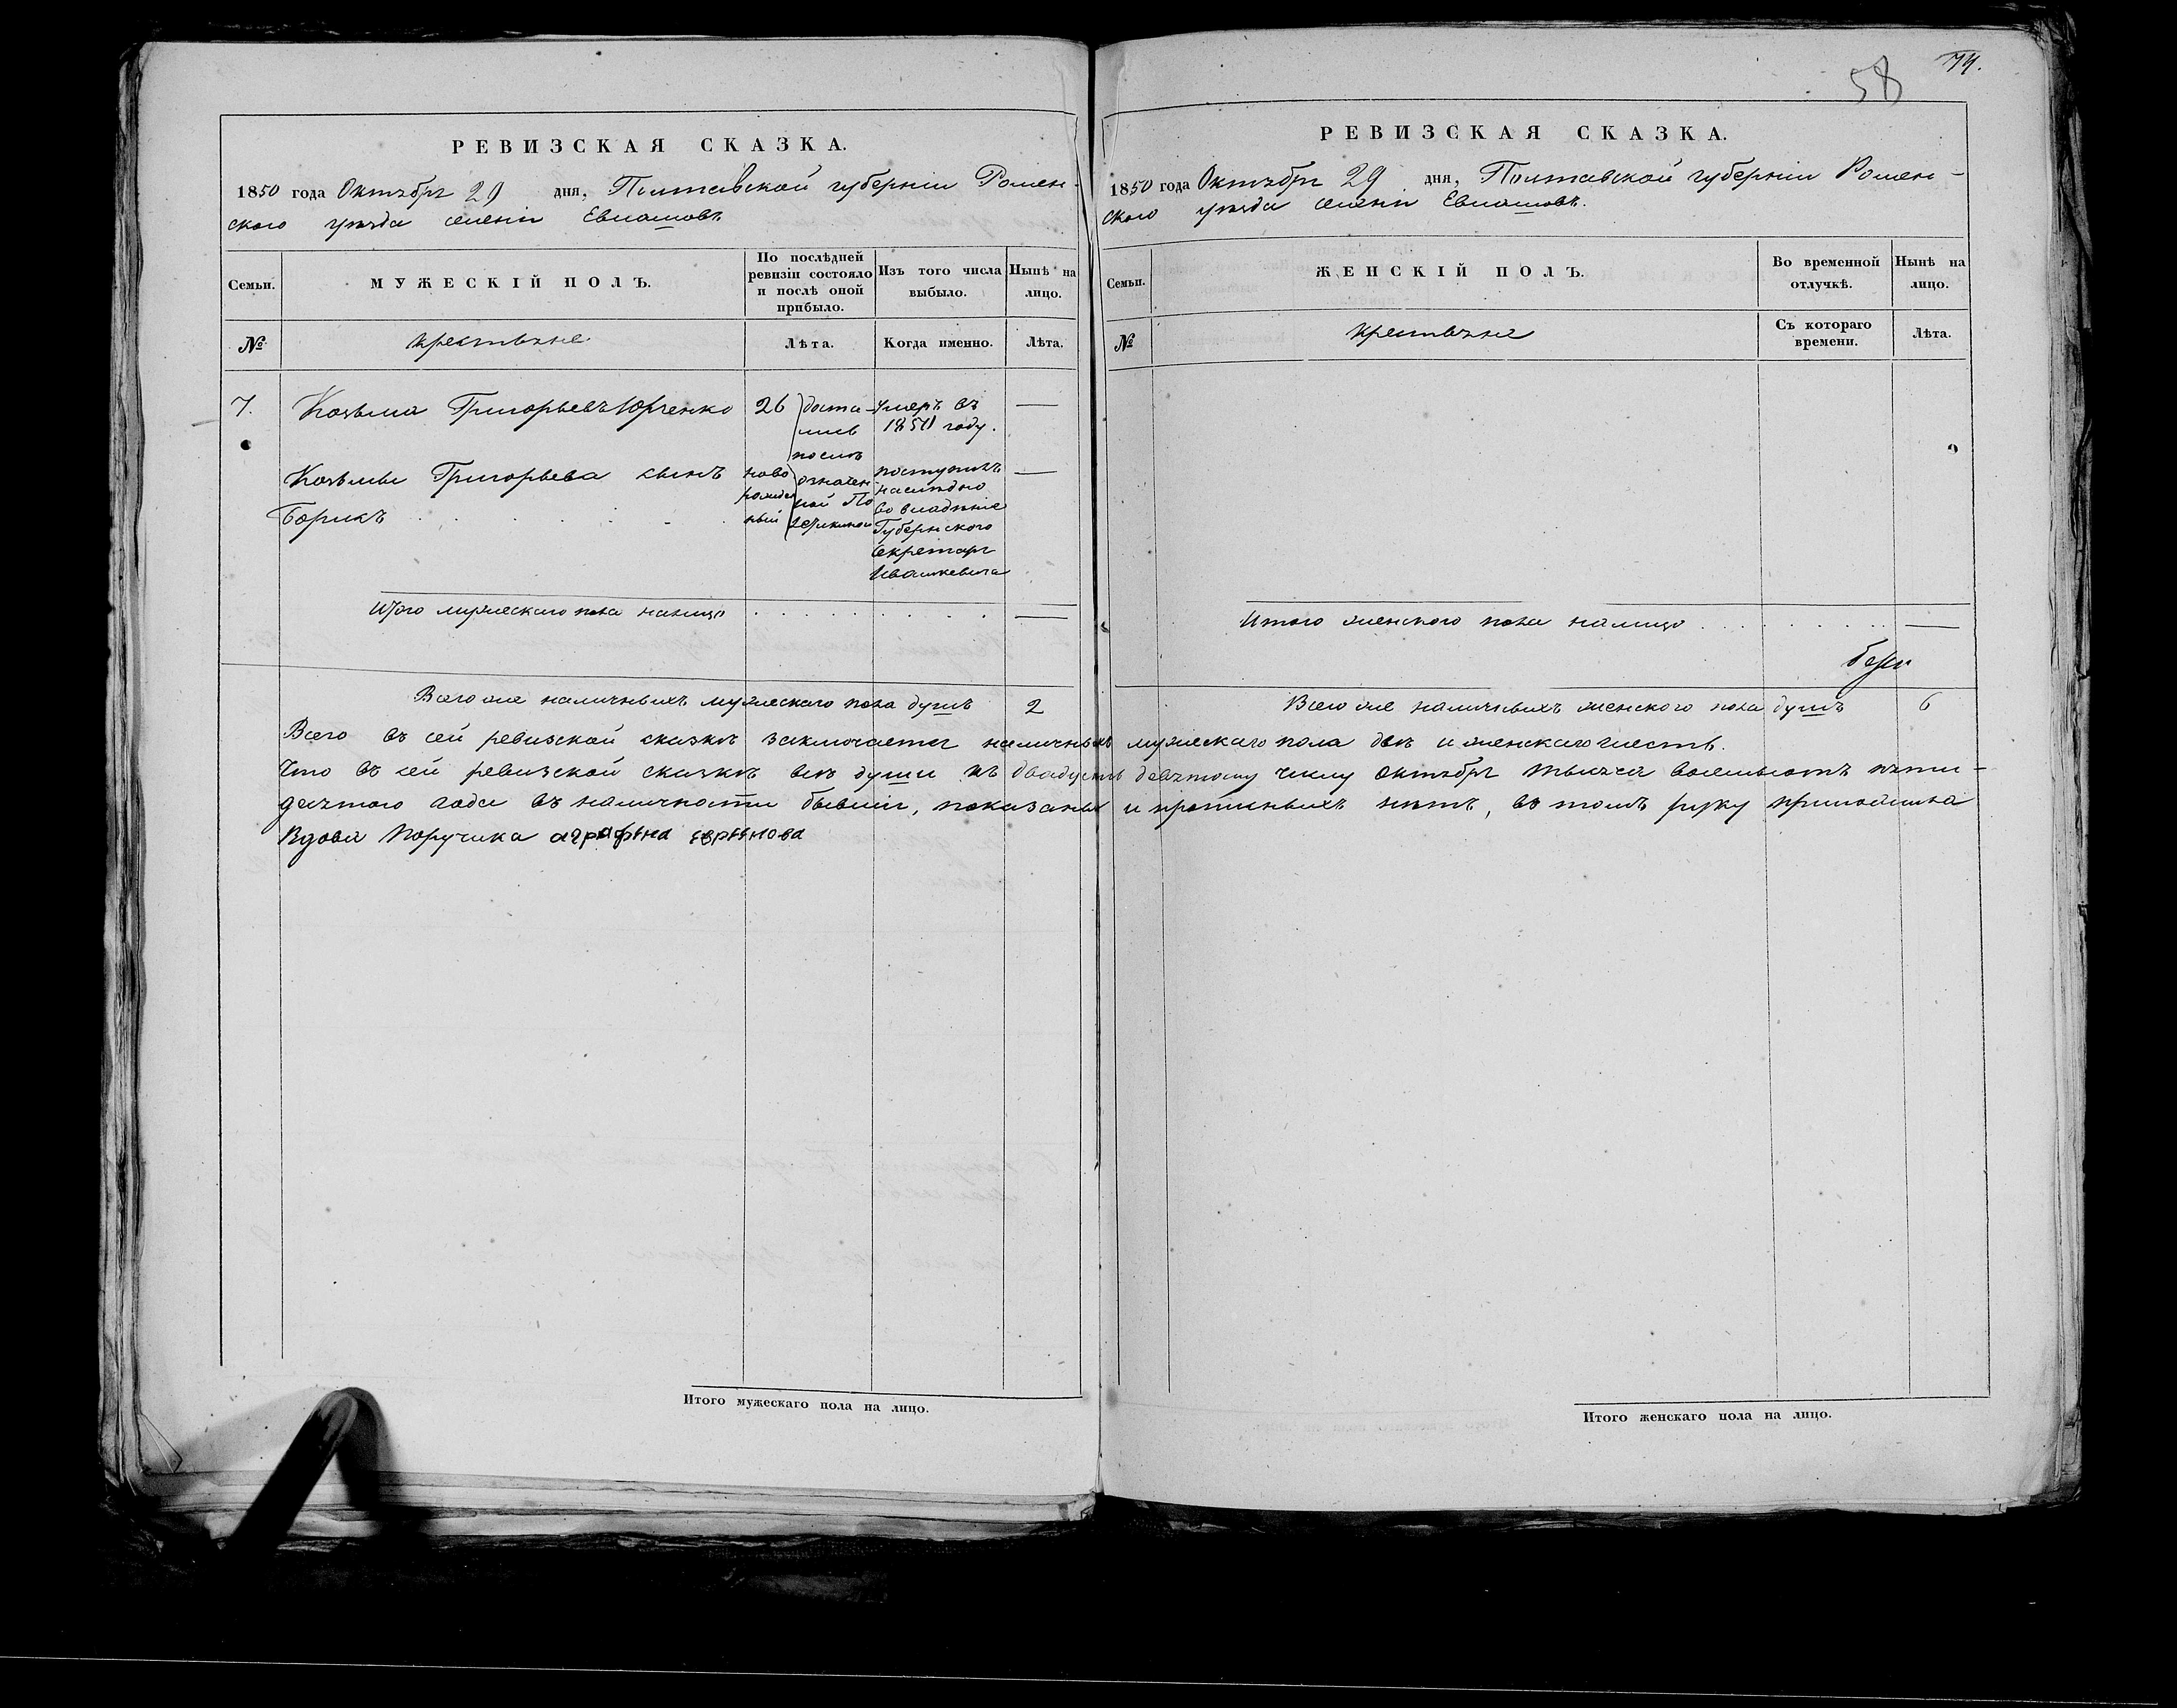 58 174.
РЕВИЗСКАЯ СКАЗКА.
1850 года Октября 29 дня, Полтавской губерніи Ромен-
скаго уѣзда селенія Евлашовъ
Семьи. МУЖЕСКІЙ ПОЛЪ. По послѣдней ревизіи состояло и послѣ оной прибыло. Изъ того числа выбыло. Нынѣ на лицо.
№ крестьяне Лѣта. Когда именно. Лѣта.
7. Козьма Григорьевъ Юрченко 26 умеръ въ —
1850 году.
Козьмы Григорьева сынъ ново поступилъ —
Борисъ рожден наслѣдно
ный во владѣніе
Губернского
Секретаря
Ивашкевича
доста-
лись
послѣ
означен
ной По
Итого мужескаго пола налицо —
Всего же наличныхъ мужескаго пола душъ 2
РЕВИЗСКАЯ СКАЗКА.
1850 года Октября 29 дня, Полтавской губерніи Ромен-
скаго уѣзда селенія Евлашовъ.
Семьи. ЖЕНСКІЙ ПОЛЪ. Во временной отлучкѣ. Нынѣ на лицо.
№ крестьяне Съ котораго времени. Лѣта.
Итого женского пола налицо —
Всего же наличныхъ женского пола душъ 6
Всего въ сей ревизской сказкѣ заключается наличныхъ мужескаго пола двѣ и женскаго шесть.
Что въ сей ревизской сказкѣ всѣ души къ двадцать девятому числу октября тысяча восемьсотъ пяти-
десятого года въ наличности бывшіи, показаны и прописныхъ нѣтъ, въ томъ руку приложила
Вдова Поручика аграфена
Итого мужескаго пола на лицо.
Итого женскаго пола на лицо.